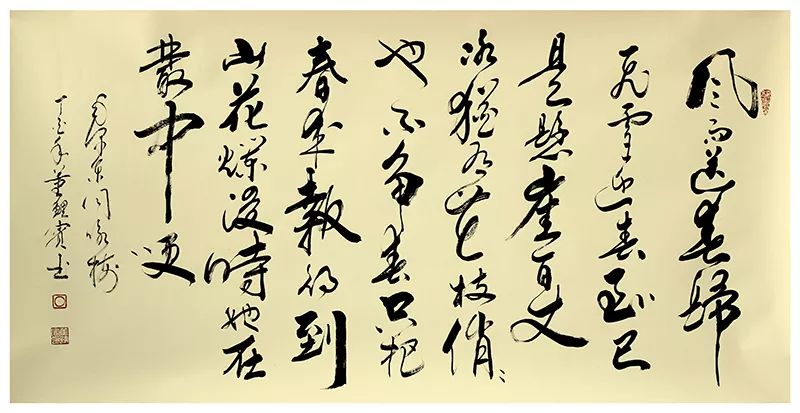 风雨送春歸
飛雪迎春到已
是懸崖百丈
冰猶有花枝俏〻
也不争春只把
春來報待到
山花爛漫時她在
叢中咲
毛澤東詞咏梅
丁酉年董賓书